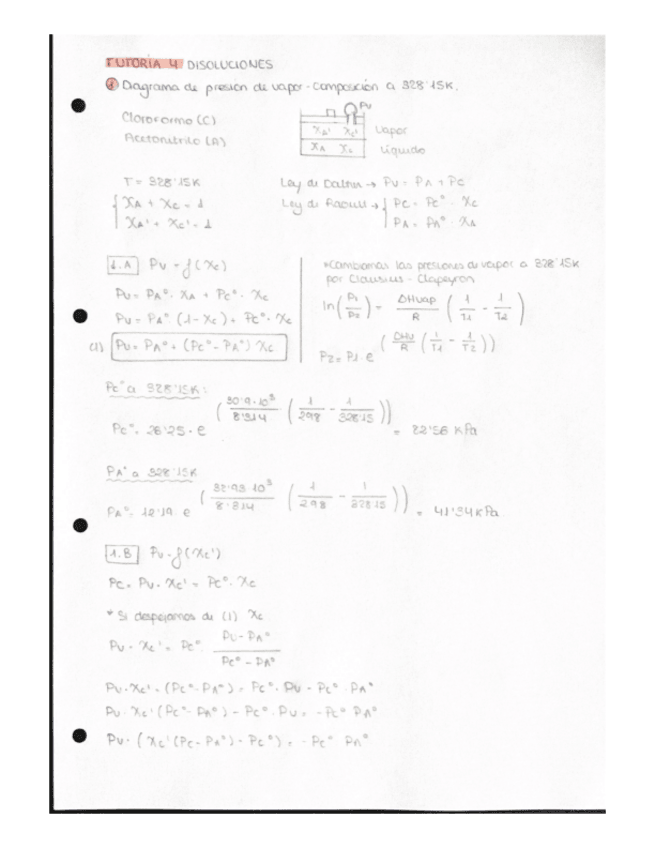 TUTORÍA 4 DISOLUCIONES
① Diagrama de presión de vapor - composición a 328'15K.
Cloroformo (C)
Acetonitrilo (A)
Pv
XA' Xc' Vapor
XA Xc Líquido
T = 328'15K
XA + Xc = 1
XA' + Xc' = 1
Ley de Dalton → Pv = PA + Pc
Ley de Raoult → Pc = Pc° · Xc
PA = PA° · XA
1.A Pv = f(Xc)
Pv = PA° · XA + Pc° · Xc
Pv = PA° (1 - Xc) + Pc° · Xc
(1) Pv = PA° + (Pc° - PA°) Xc
*Cambiamos las presiones de vapor a 328'15K
por Clausius - Clapeyron
ln(P1/P2) = ΔHvap/R (1/T1 - 1/T2)
P2 = P1 · e^(ΔHv/R (1/T1 - 1/T2))
Pc° a 328'15K:
Pc° = 26'25 · e^(30'9·10³/8'314 (1/298 - 1/328'15)) = 82'56 kPa
PA° a 328'15K
PA° = 12'19 · e^(32'93·10³/8'314 (1/298 - 1/328'15)) = 41'34 kPa
1.B Pv = f(Xc')
Pc = Pv · Xc' = Pc° · Xc
* Si despejamos de (1) Xc
Pv · Xc' = Pc° · Pv - PA° / Pc° - PA°
Pv · Xc' · (Pc° - PA°) = Pc° · Pv - Pc° · PA°
Pv · Xc' (Pc° - PA°) - Pc° · Pv = - Pc° PA°
Pv · (Xc' (Pc - PA°) - Pc°) = - Pc° PA°